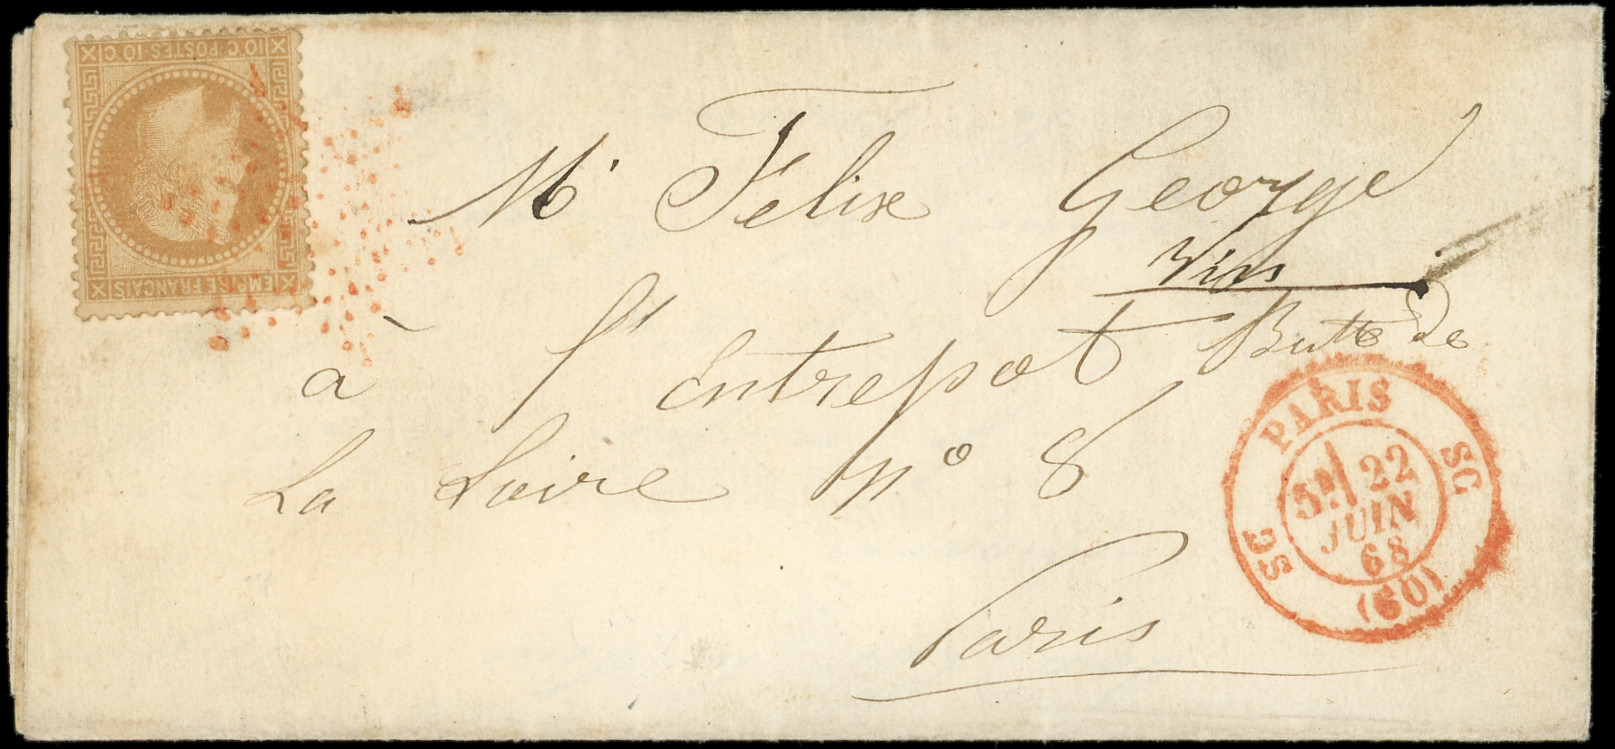 10 C. POSTES 10 C.
EMPIRE FRANÇAIS
Mr Felix George
Vins
à l'Entrepot Butte de
La Loire n° 8
Paris
PARIS
SC
5E 22
JUIN
68
(60)
SC